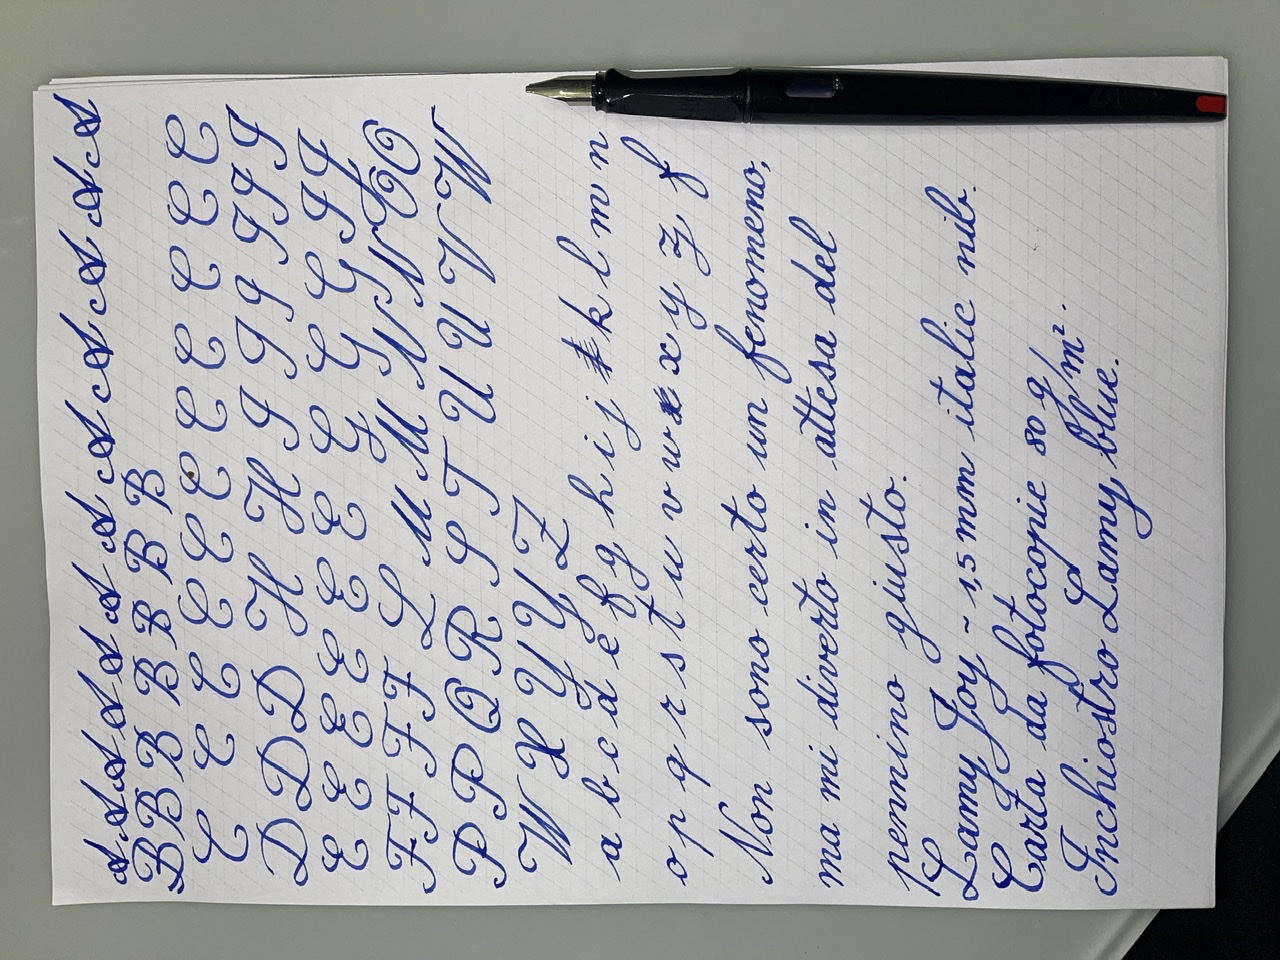 A A A A A A A A A A A A
B B B B B B B
C C C C C C C C C C C
D D D H H
E E E E E E
F F F F L M M N N O O
P P Q R S T U U V W
W X Y Y Z
a b c d e f g h i j k l m n
o p q r s t u v w x y z f
Non sono certo un fenomeno,
ma mi diverto in attesa del
pennino giusto.
Lamy Joy ~ 1,5 mm italic nib.
Carta da fotocopie 80 g/m².
Inchiostro Lamy, blue.